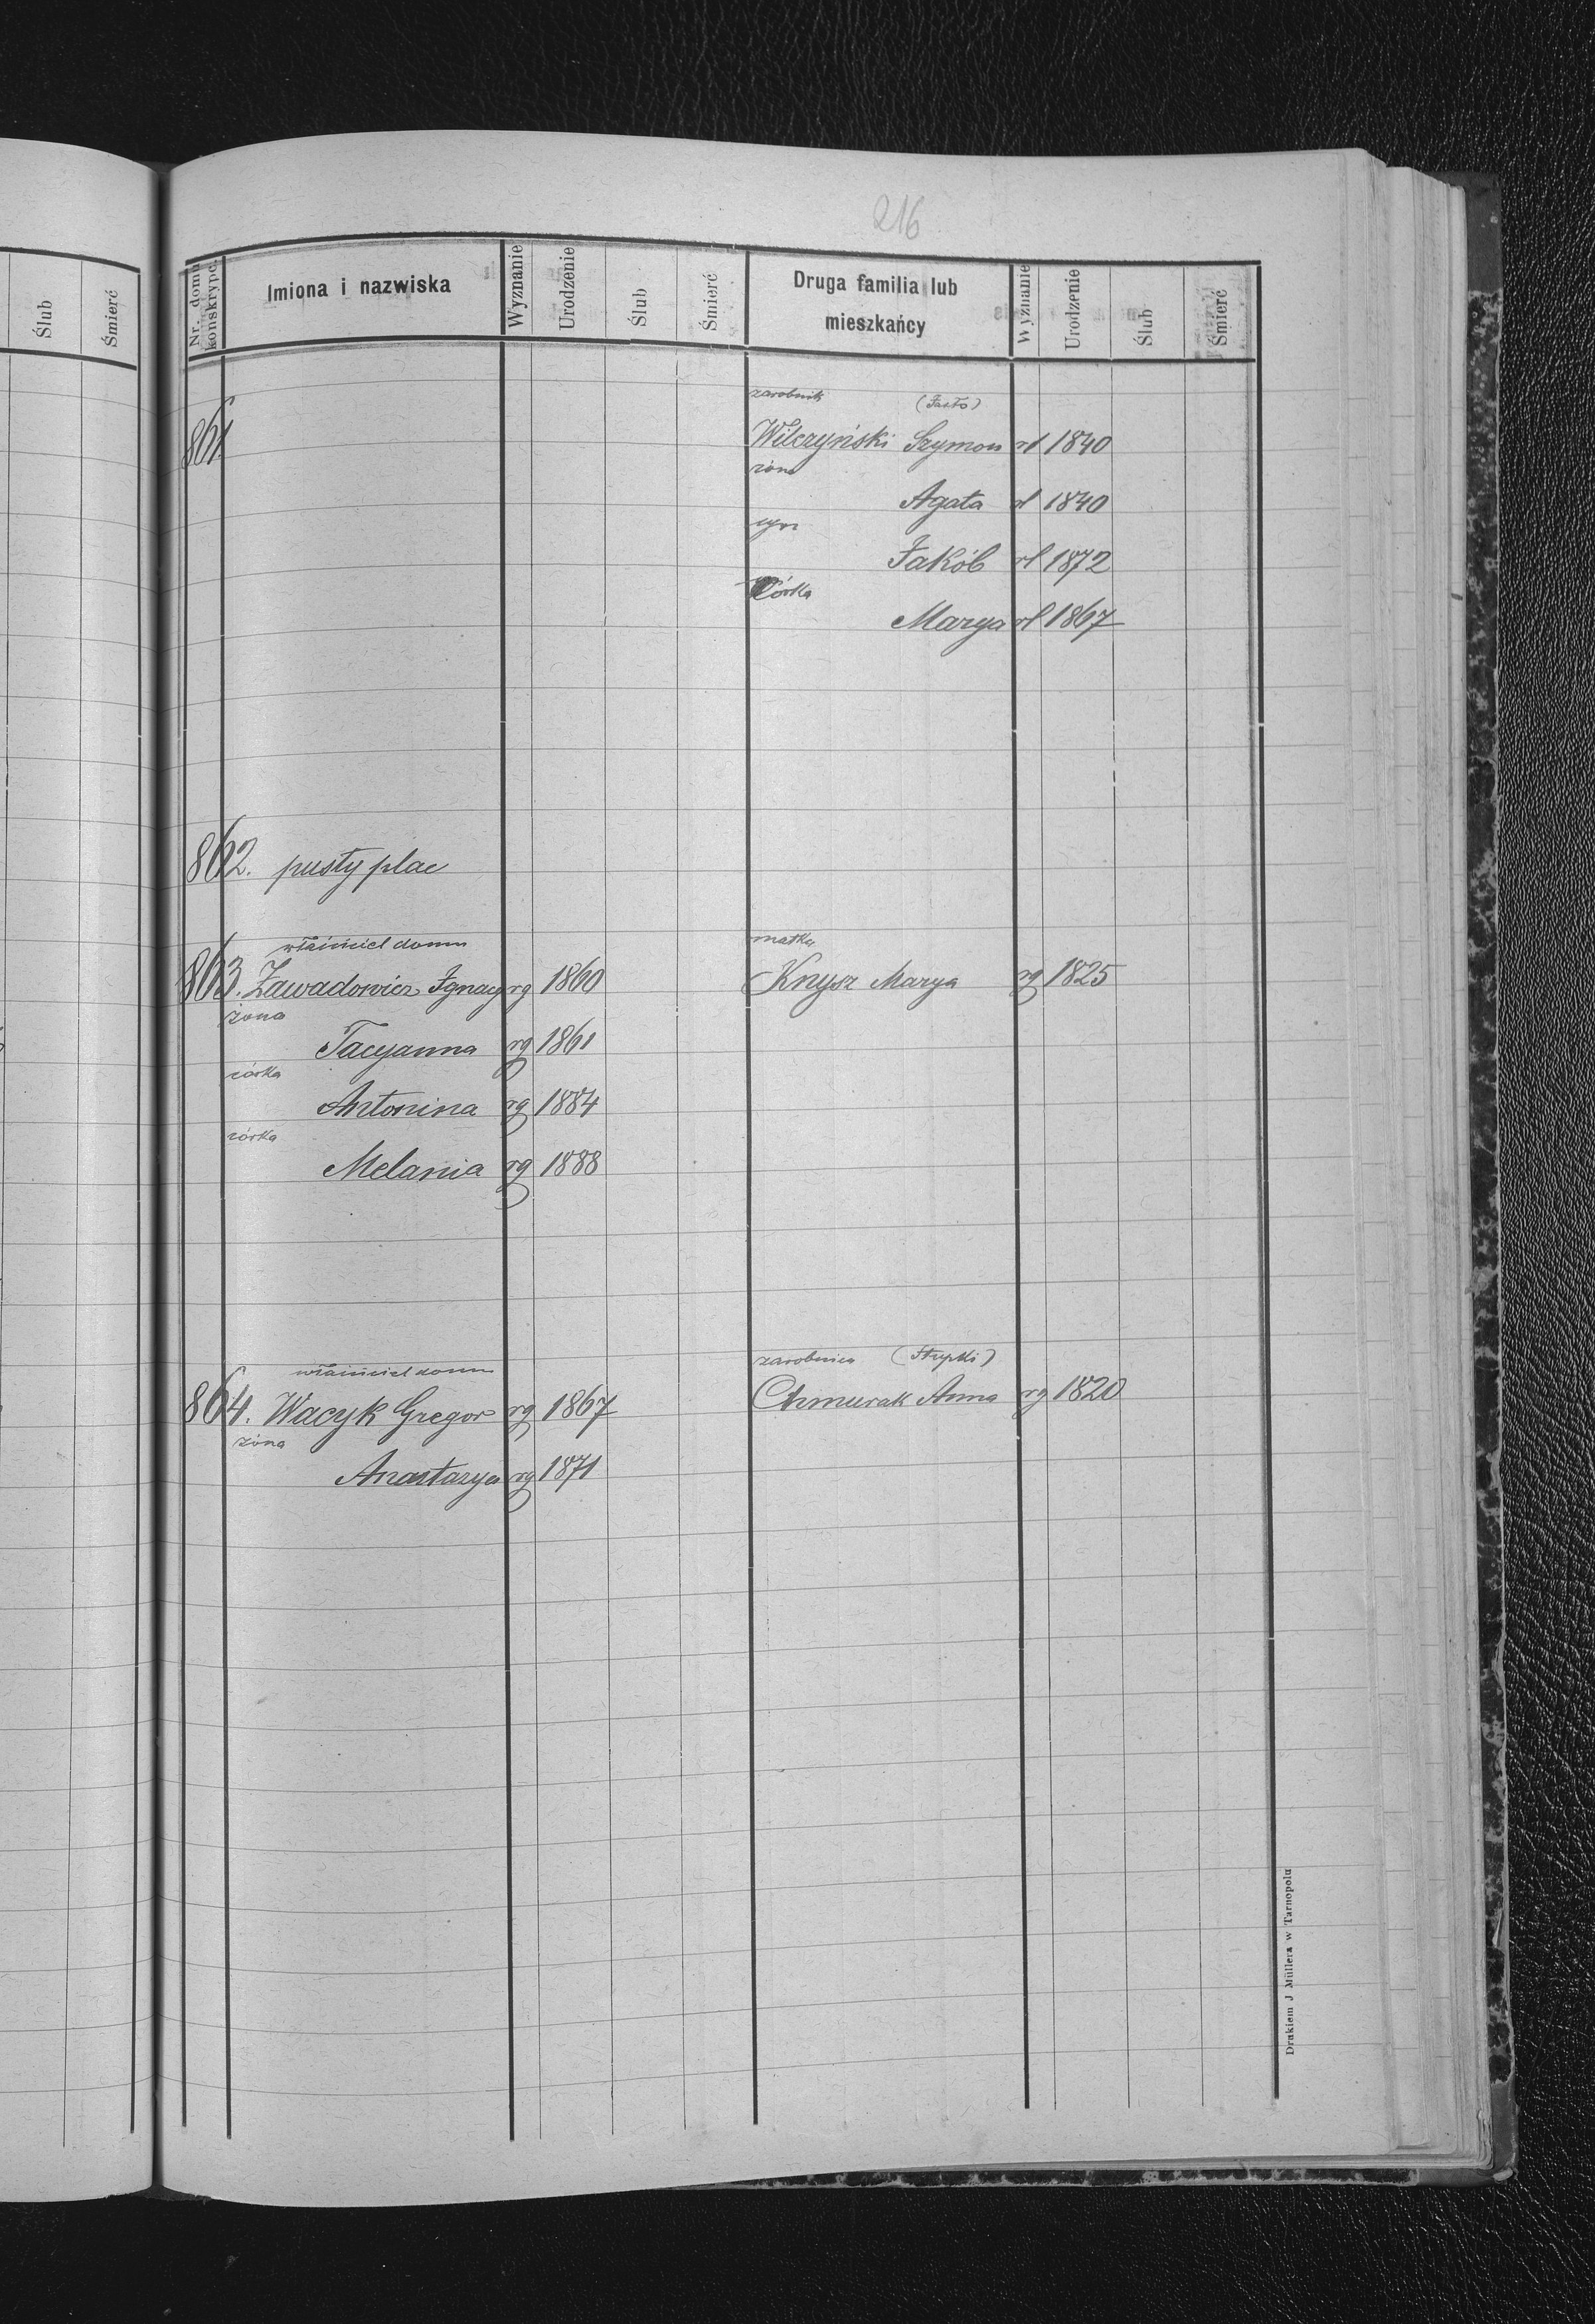 216
Ślub Śmierć
Nr. domu konskrypc. Imiona i nazwiska Wyznanie Urodzenie Ślub Śmierć Druga familia lub mieszkańcy Wyznanie Urodzenie Ślub Śmierć
zarobnik (Jasło)
861 Wilczyński Szymon rł 1840
żona
Agata rł 1840
syn
Jakób rł 1872
Córka
Marya rł 1867
862. pusty plac
właściciel domu matka
863. Zawadowicz Ignacy rg 1860 Knysz Marya rg 1825
żona
Tacyanna rg 1861
córka
Antonina rg 1884
córka
Melania rg 1888
właściciel domu zarobnica (Stupki)
864. Wacyk Gregor rg 1867 Chmurak Anna rg 1820
żona
Anastazya rg 1871
Drukiem J Müllera w Tarnopolu